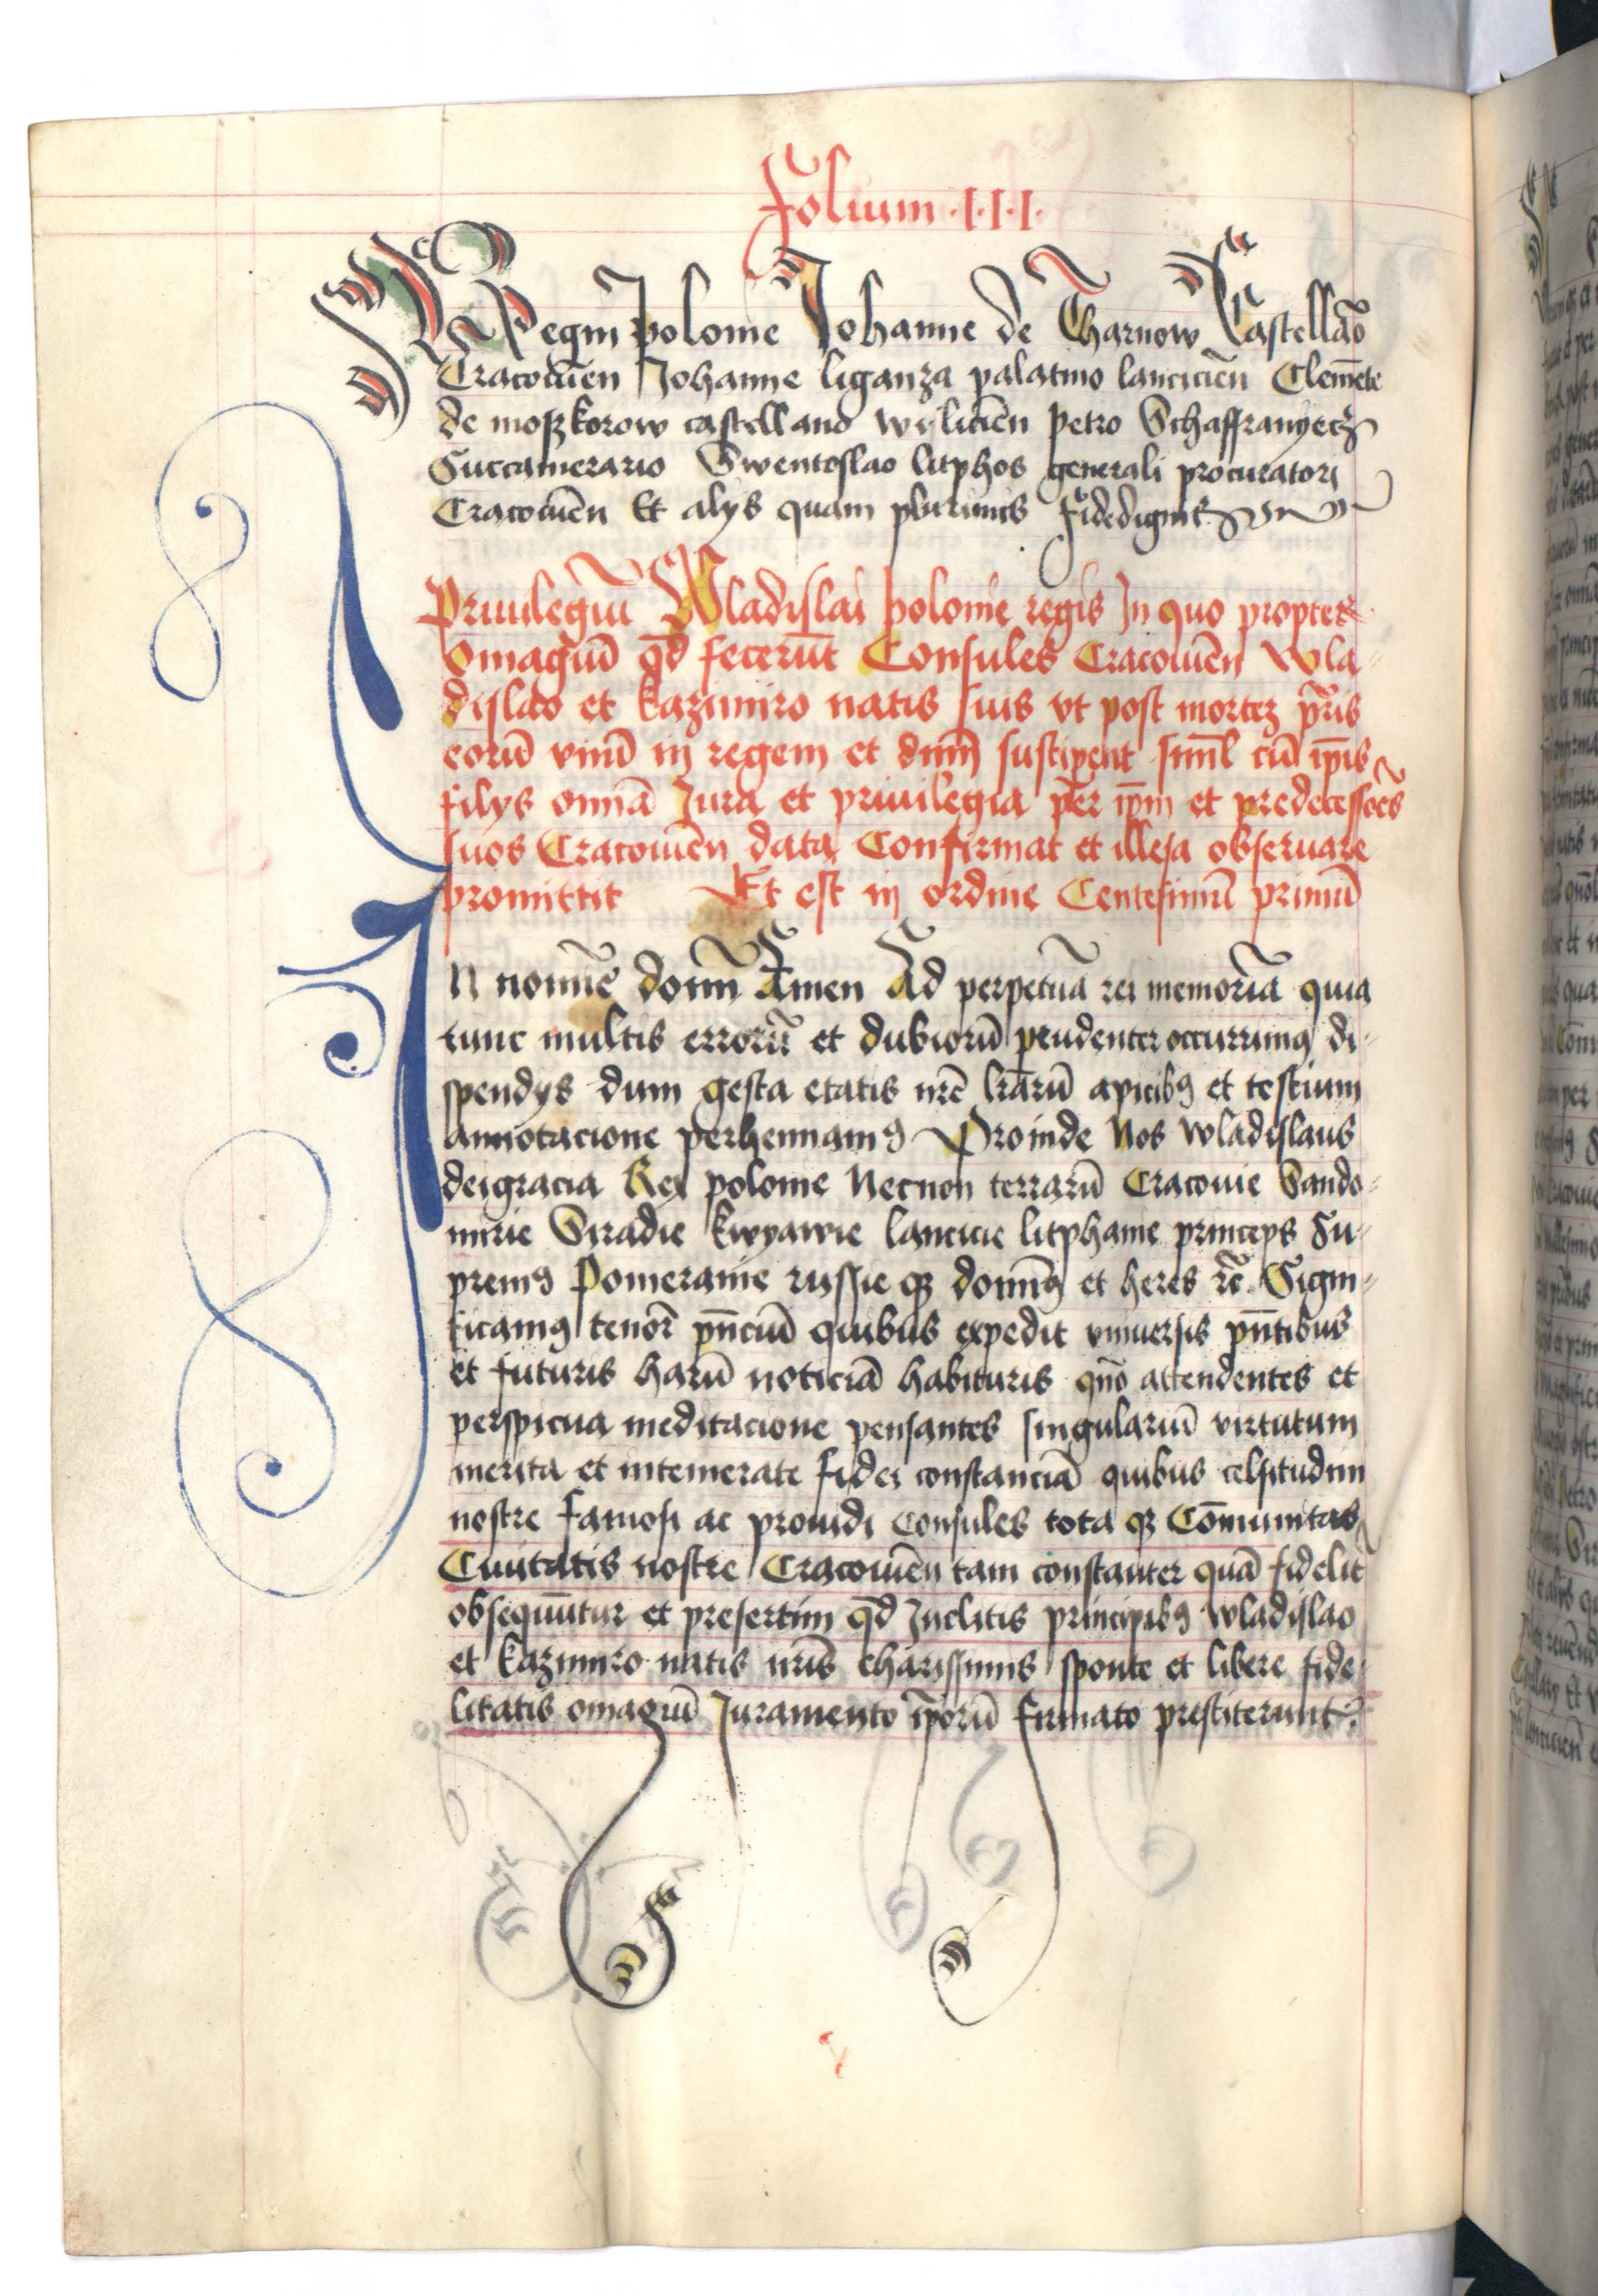 Folium ·I·I·I·
Regni polonie Johanne de Tharnow Castellão
Cracouieñ Johanne liganza palatino lancicieñ Clemēte
de moſzkorow castellano wiſlicieñ petro Schaffranyecz
Succamerario Swentoſlao litphos generali procuratori
Cracouieñ Et alys quam plurimis fidedignis
Priuilegiū Wladiſlai polonie regis In quo propter
Omagiū qd̄ fecerūt Consules Cracouieñ Wla⸗
diſlao et kazimiro natis suis vt post mortez pr̄is
eorū vnū in regem et dnm̄ suscipent siml̄ cū ip̄is
filys omīa Jura et priuilegia per ip̄m et predecessoēs
suos Cracouieñ data Confirmat et illesa obseruare
promittit Et est in ordine Centesimū primū
In nomīe domī Amen Ad perpetuā rei memoriā quia
tunc multis errorū et dubiorū prudenter occurrimꝯ di⸗
spendys dum gesta etatis nrē lrārū apicibꝯ et testium
annotacione perhennamꝯ Proinde Nos wladiſlaus
deigracia Rex polonie Necnon terrarū Cracouie Sando⸗
mirie Siradie kwyawie lancicie litphanie princeps Su⸗
premꝯ Pomeranie ruſſie qꝫ dominꝯ et heres rc̄ Signi⸗
ficamꝯ tenorē pn̄ciū quibus expedit vniuersis pn̄tibus
et futuris harū noticiā habituris quō attendentes et
perspicua meditacione pensantes singulariū virtutum
merita et intemerate fidei constanciā quibus celsitudini
nostre famosi ac prouidi consules tota qꝫ Cōmunitas
Ciuitatis nostre Cracouieñ tam constanter quā fidelit̄
obsequūtur et presertim qd̄ Inclitis principibꝯ wladiſlao
et kazimiro natis nrīs chariſſimis sponte et libere fide⸗
litatis omagiū Juramento ip̄orū firmato prestiterunt